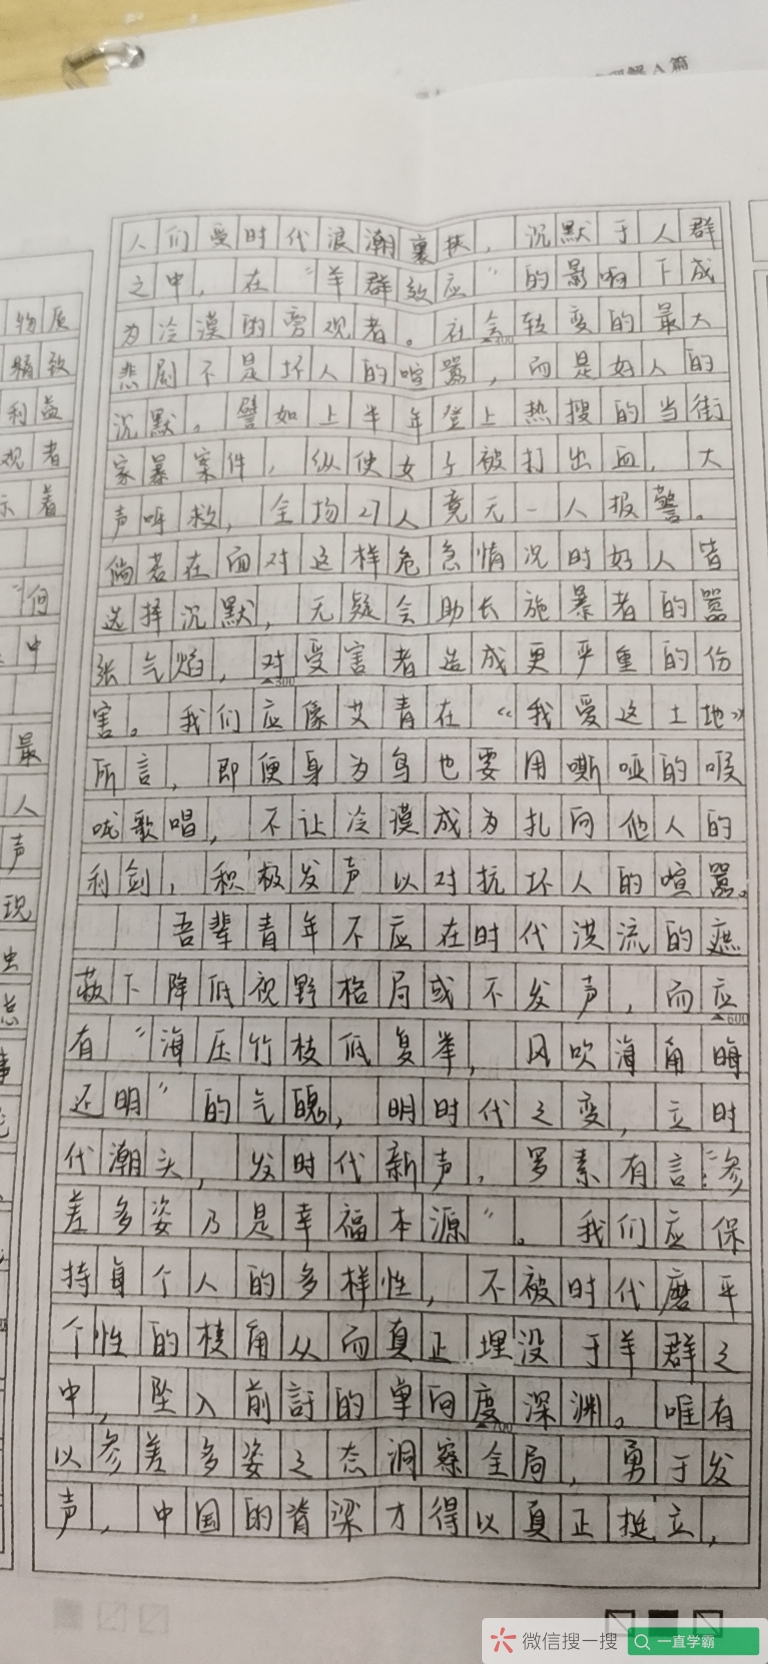 解A篇
物质
精致
利益
观者
示着
何
中
最
人
声
现
虫
总
人们受时代浪潮裹挟，沉默于人群
之中，在"羊群效应"的影响下成
为冷漠的旁观者。社会转变的最大
悲剧不是坏人的喧嚣，而是好人的
沉默。譬如上半年登上热搜的当街
家暴案件，纵使女子被打出血，大
声呼救，全场27人竟无一人报警。
倘若在面对这样危急情况时好人皆
选择沉默，无疑会助长施暴者的嚣
张气焰，对受害者造成更严重的伤
500
害。我们应像艾青在《我爱这土地》
所言，即便身为鸟也要用嘶哑的喉
咙歌唱，不让冷漠成为扎向他人的
利剑，积极发声以对抗坏人的喧嚣。
吾辈青年不应在时代洪流的遮
蔽下降低视野格局或不发声，而应
600
有"海压竹枝低复举，风吹海角晦
还明"的气魄，明时代之变，立时
代潮头，发时代新声。罗素有言："参
差多姿乃是幸福本源"。我们应保
持每个人的多样性，不被时代磨平
个性的棱角从而真正埋没于羊群之
中，坠入前討的单向度深渊。唯有
700
以参差多姿之态洞察全局，勇于发
声，中国的脊梁才得以真正挺立，
微信搜一搜 一直学霸